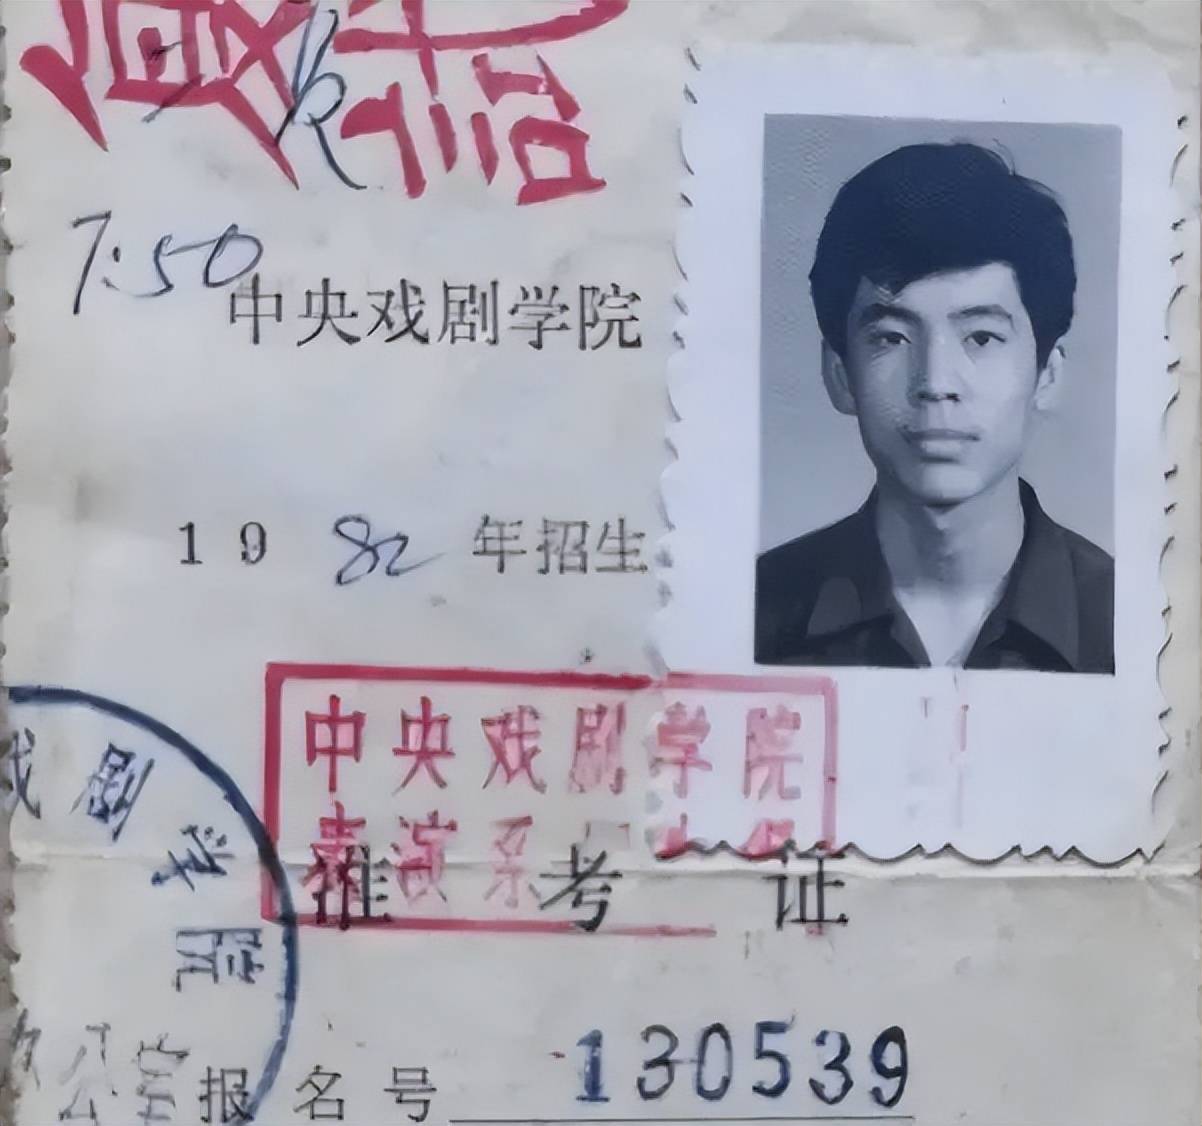 7:50
中央戏剧学院
1982年招生
中央戏剧学院
表演系
准考证
戏剧学院
办公室
报名号 130539